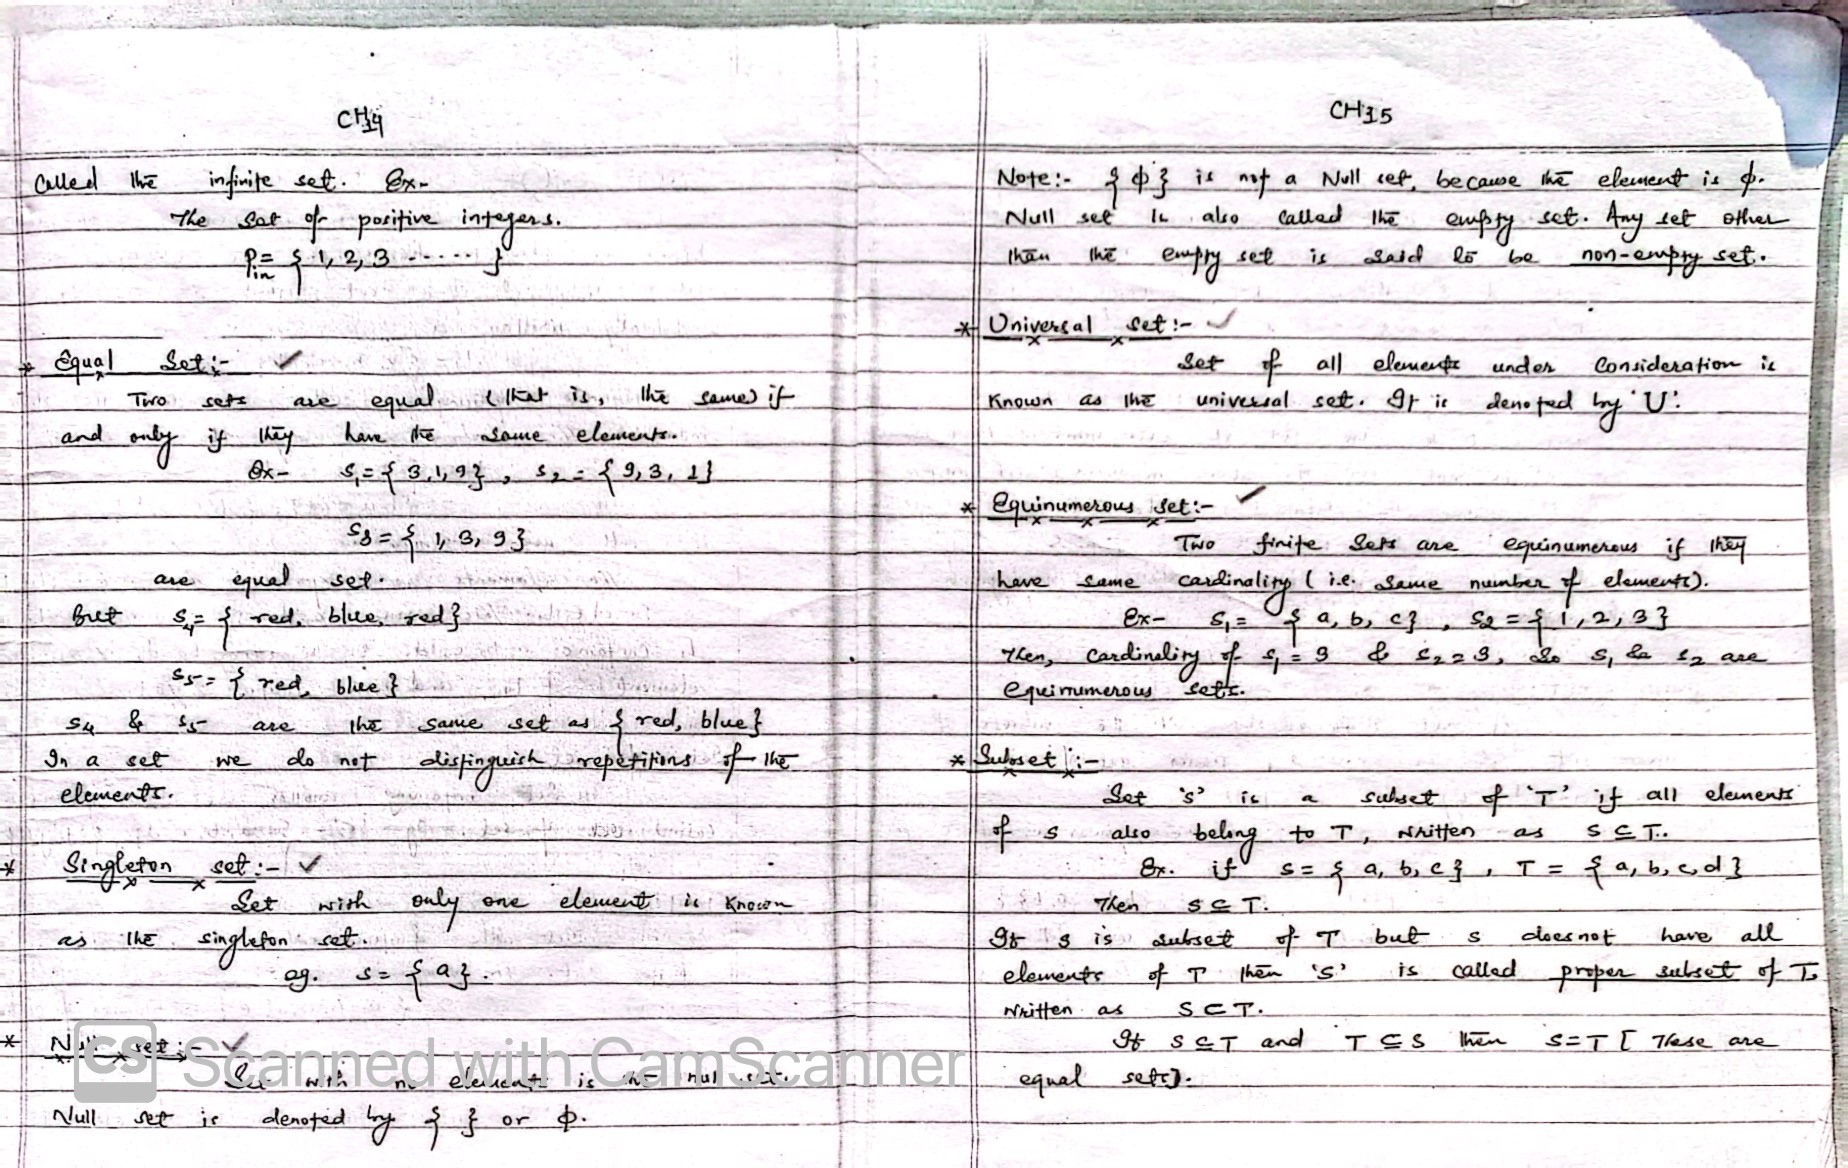 CH14
Called the infinite set. Ex-
The Set of positive integers.
Pin = { 1, 2, 3 ...... }
* Equal Set:-
Two sets are equal (that is, the same) if
and only if they have the same elements.
Ex- S1 = { 3, 1, 9}, S2 = { 9, 3, 1}
S3 = { 1, 3, 9}
are equal set.
But S4 = { red, blue, red}
S5 = { red, blue}
S4 & S5 are the same set as { red, blue}
In a set we do not distinguish repetitions of the
elements.
* Singleton set:-
Set with only one element is known
as the singleton set.
eg. S = { a}.
* Null set:-
Set with no element is the null set.
Null set is denoted by { } or ϕ.
CS Scanned with CamScanner
CH15
Note:- { ϕ} is not a Null set, because the element is ϕ.
Null set is also called the empty set. Any set other
than the empty set is said to be non-empty set.
* Universal set:-
Set of all elements under Consideration is
known as the universal set. It is denoted by 'U'.
* Equinumerous set:-
Two finite Sets are equinumerous if they
have same cardinality (i.e. same number of elements).
Ex- S1 = { a, b, c}, S2 = { 1, 2, 3}
Then, Cardinality of S1 = 3 & S2 = 3, So S1 & S2 are
equinumerous sets.
* Subset:-
Set 'S' is a subset of 'T' if all elements
of S also belong to T, written as S ⊆ T.
Ex. if S = { a, b, c}, T = { a, b, c, d}
Then S ⊆ T.
If S is subset of T but S doesnot have all
elements of T then 'S' is called proper subset of T,
written as S ⊂ T.
If S ⊆ T and T ⊆ S then S = T [ These are
equal sets].